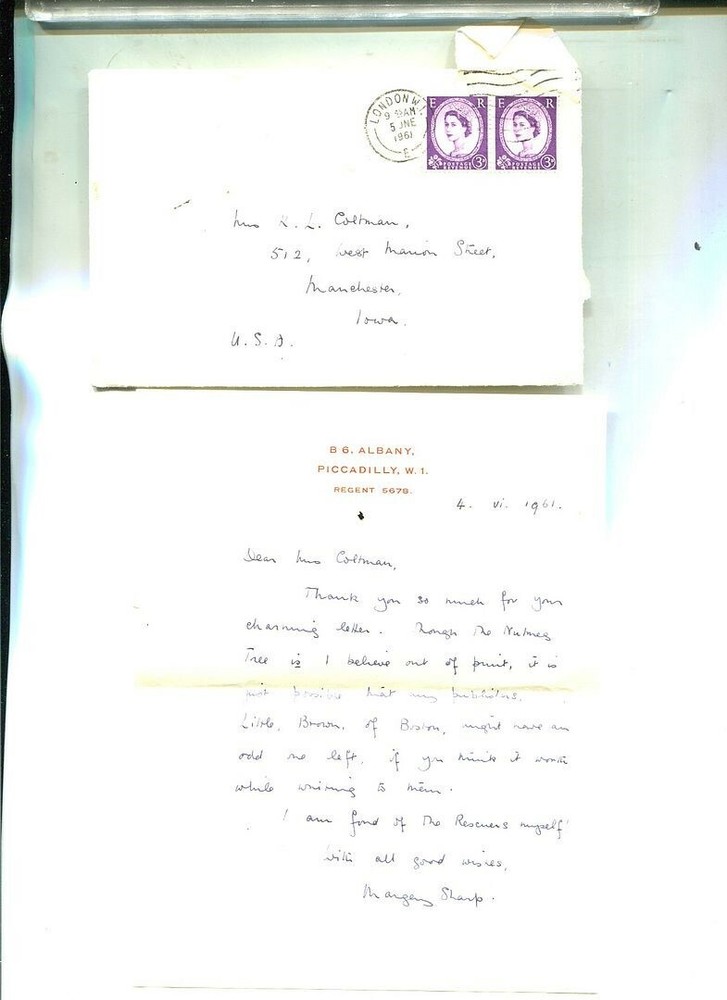 LONDON W.1
9 30AM
5 JNE
1961
E
E R
POSTAGE REVENUE
3D
E R
POSTAGE REVENUE
3D
Mrs K. L. Coltman,
512, West Marion Street,
Manchester,
Iowa.
U.S.A.
B 6. ALBANY,
PICCADILLY, W. 1.
REGENT 5678.
4. vi. 1961.
Dear Mrs Coltman,
Thank you so much for your
charming letter. Though The Nutmeg
Tree is I believe out of print, it is
just possible that my publishers,
Little, Brown, of Boston, might have an
odd one left, if you think it worth
while writing to them.
I am fond of The Rescuers myself!
With all good wishes,
Margery Sharp.